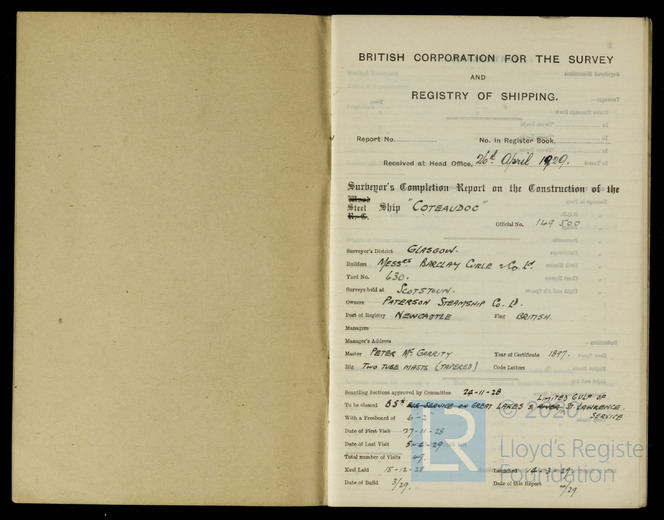 BRITISH CORPORATION FOR THE SURVEY
AND
REGISTRY OF SHIPPING.
Report No. No. in Register Book,
Received at Head Office, 26th April 1929.
Surveyor's Completion Report on the Construction of the
Wood
Steel Ship "COTEAUDOC"
R.-C.
Official No. 149 500
Surveyor's District GLASGOW.
Builders MESSRS BARCLAY CURLE & CO. LD.
Yard No. 630.
Surveys held at SCOTSTOUN.
Owners PATERSON STEAMSHIP CO. LD.
Port of Registry NEWCASTLE Flag BRITISH.
Managers
Manager's Address
Master PETER MCGARRITY Year of Certificate 1897.
Rig TWO TUBE MASTS (TAPERED) Code Letters
Scantling Sections approved by Committee 24-11-28
LIMITED GULF OF
To be classed BS* SERVICE ON GREAT LAKES & RIVER ST LAWRENCE.
SERVICE
With a Freeboard of 6-2
Date of First Visit 27-11-28
Date of Last Visit 5-4-29
Total number of Visits 49.
Keel Laid 15-12-28 Launched 14-3-29.
Date of Build 3/29. Date of this Report 4/29
© 2020
LR
Lloyd's Register
Foundation